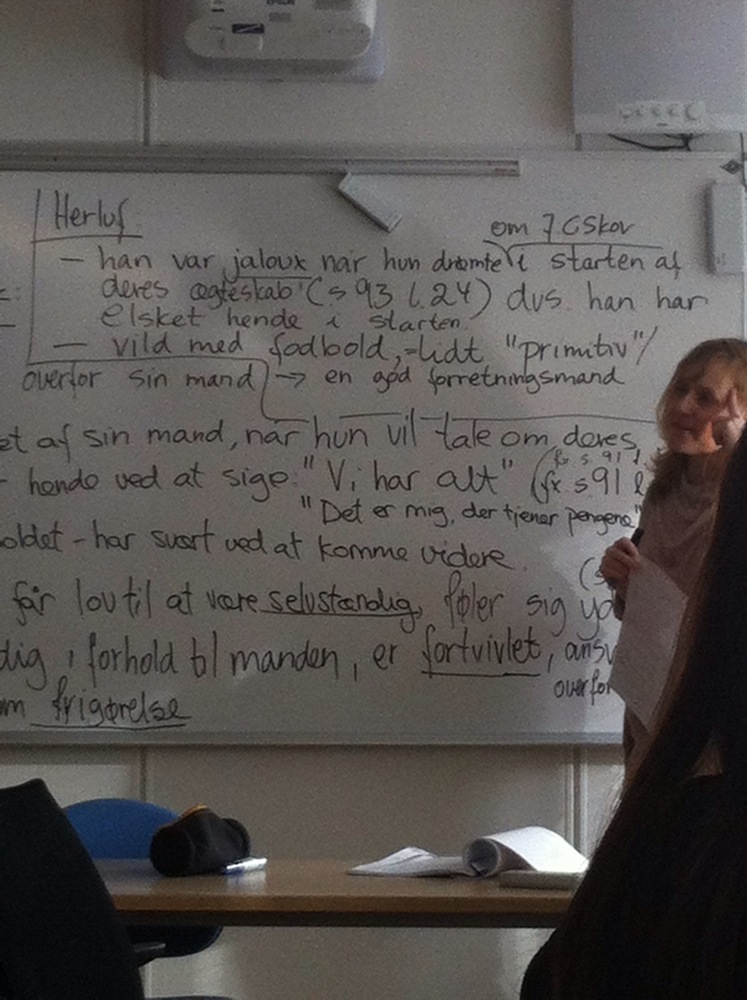 Herluf
om J.C Skov
— han var jaloux når hun drømte i starten af
deres ægteskab (s 93 l.24) dvs. han har
elsket hende i starten.
— vild med fodbold, = lidt "primitiv"/
overfor sin mand → en god forretningsmand
et af sin mand, når hun vil tale om deres
hende ved at sige: "Vi har alt" (fx s 91 l
"Det er mig, der tjener pengene"
oldet - har svært ved at komme videre.
får lov til at være selvstændig, føler sig yd
dig i forhold til manden, er fortvivlet, ansv
overfor
m frigørelse